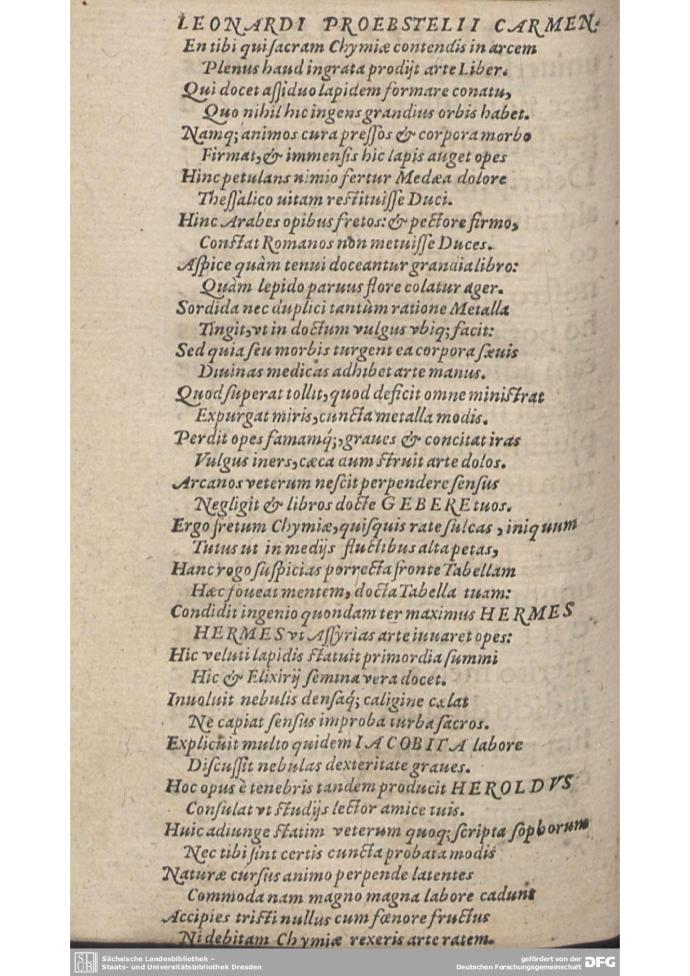 LEONARDI PROEBSTELII CARMEN.
En tibi qui sacram Chymiæ contendis in arcem
Plenus haud ingrata prodijt arte Liber.
Qui docet aſſiduo lapidem formare conatu,
Quo nihil hic ingens grandius orbis habet.
Namq; animos cura preſſos & corpora morbo
Firmat, & immenſis hic lapis auget opes
Hinc petulans nimio fertur Medæa dolore
Theſſalico uitam reſtituiſſe Duci.
Hinc Arabes opibus fretos: & pectore firmo,
Conſtat Romanos non metuiſſe Duces.
Aſpice quàm tenui doceantur grandia libro:
Quàm lepido paruus flore colatur ager.
Sordida nec duplici tantùm ratione Metalla
Tingit, vt in doctum vulgus vbiq; facit:
Sed quia ſeu morbis turgent ea corpora ſæuis
Diuinas medicas adhibet arte manus.
Quod ſuperat tollit, quod deficit omne miniſtrat
Expurgat miris, cuncta metalla modis.
Perdit opes famamq́;, graues & concitat iras
Vulgus iners, cæca dum ſtruit arte dolos.
Arcanos veterum neſcit perpendere ſenſus
Negligit & libros docte GEBERE tuos.
Ergo fretum Chymiæ, quiſquis rate ſulcas, iniquum
Tutus ut in medijs fluctibus alta petas,
Hanc rogo ſuſpicias porrecta fronte Tabellam
Hæc foueat mentem, docta Tabella tuam:
Condidit ingenio quondam ter maximus HERMES
HERMES vt Aſſyrias arte iuuaret opes:
Hic veluti lapidis ſtatuit primordia ſummi
Hic & Elixirij ſemina vera docet.
Inuoluit nebulis denſaq́; caligine cælat
Ne capiat ſenſus improba turba ſacros.
Explicuit multo quidem IACOBITA labore
Diſcuſſit nebulas dexteritate graues.
Hoc opus è tenebris tandem producit HEROLDVS
Conſulat vt ſtudijs lector amice tuis.
Huic adiunge ſtatim veterum quoq; ſcripta ſophorum
Nec tibi ſint certis cuncta probata modis
Naturæ curſus animo perpende latentes
Commoda nam magno magna labore cadunt
Accipies triſti nullus cum fœnore fructus
Ni debitam Chymiæ rexeris arte ratem.
SLUB
Sächsische Landesbibliothek –
Staats- und Universitätsbibliothek Dresden
gefördert von der
Deutschen Forschungsgemeinschaft DFG